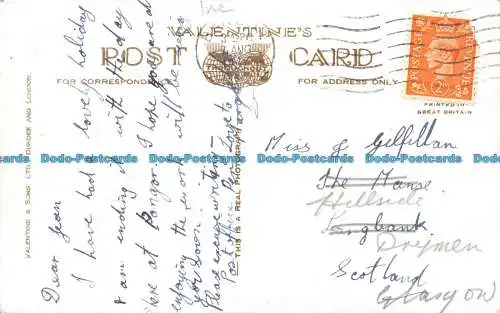 VALENTINE'S
POST CARD
FOR CORRESPONDENCE
FOR ADDRESS ONLY
PRINTED IN
GREAT BRITAIN
POSTAGE
REVENUE
2D
VALENTINE & SONS, LTD., DUNDEE AND LONDON
THIS IS A REAL PHOTOGRAPH
Dear Jean
I have had a lovely holiday
& am ending it with the day
here at Bangor. I hope you are
enjoying the work & will be seeing
you soon.
Please excuse writing
Post office pen Love to
Miss J Gilfillan
The Manse
Hillside
Langbank
Drymen
Scotland
Glasgow
Dodo-Postcards Dodo-Postcards Dodo-Postcards Dodo-Postcards